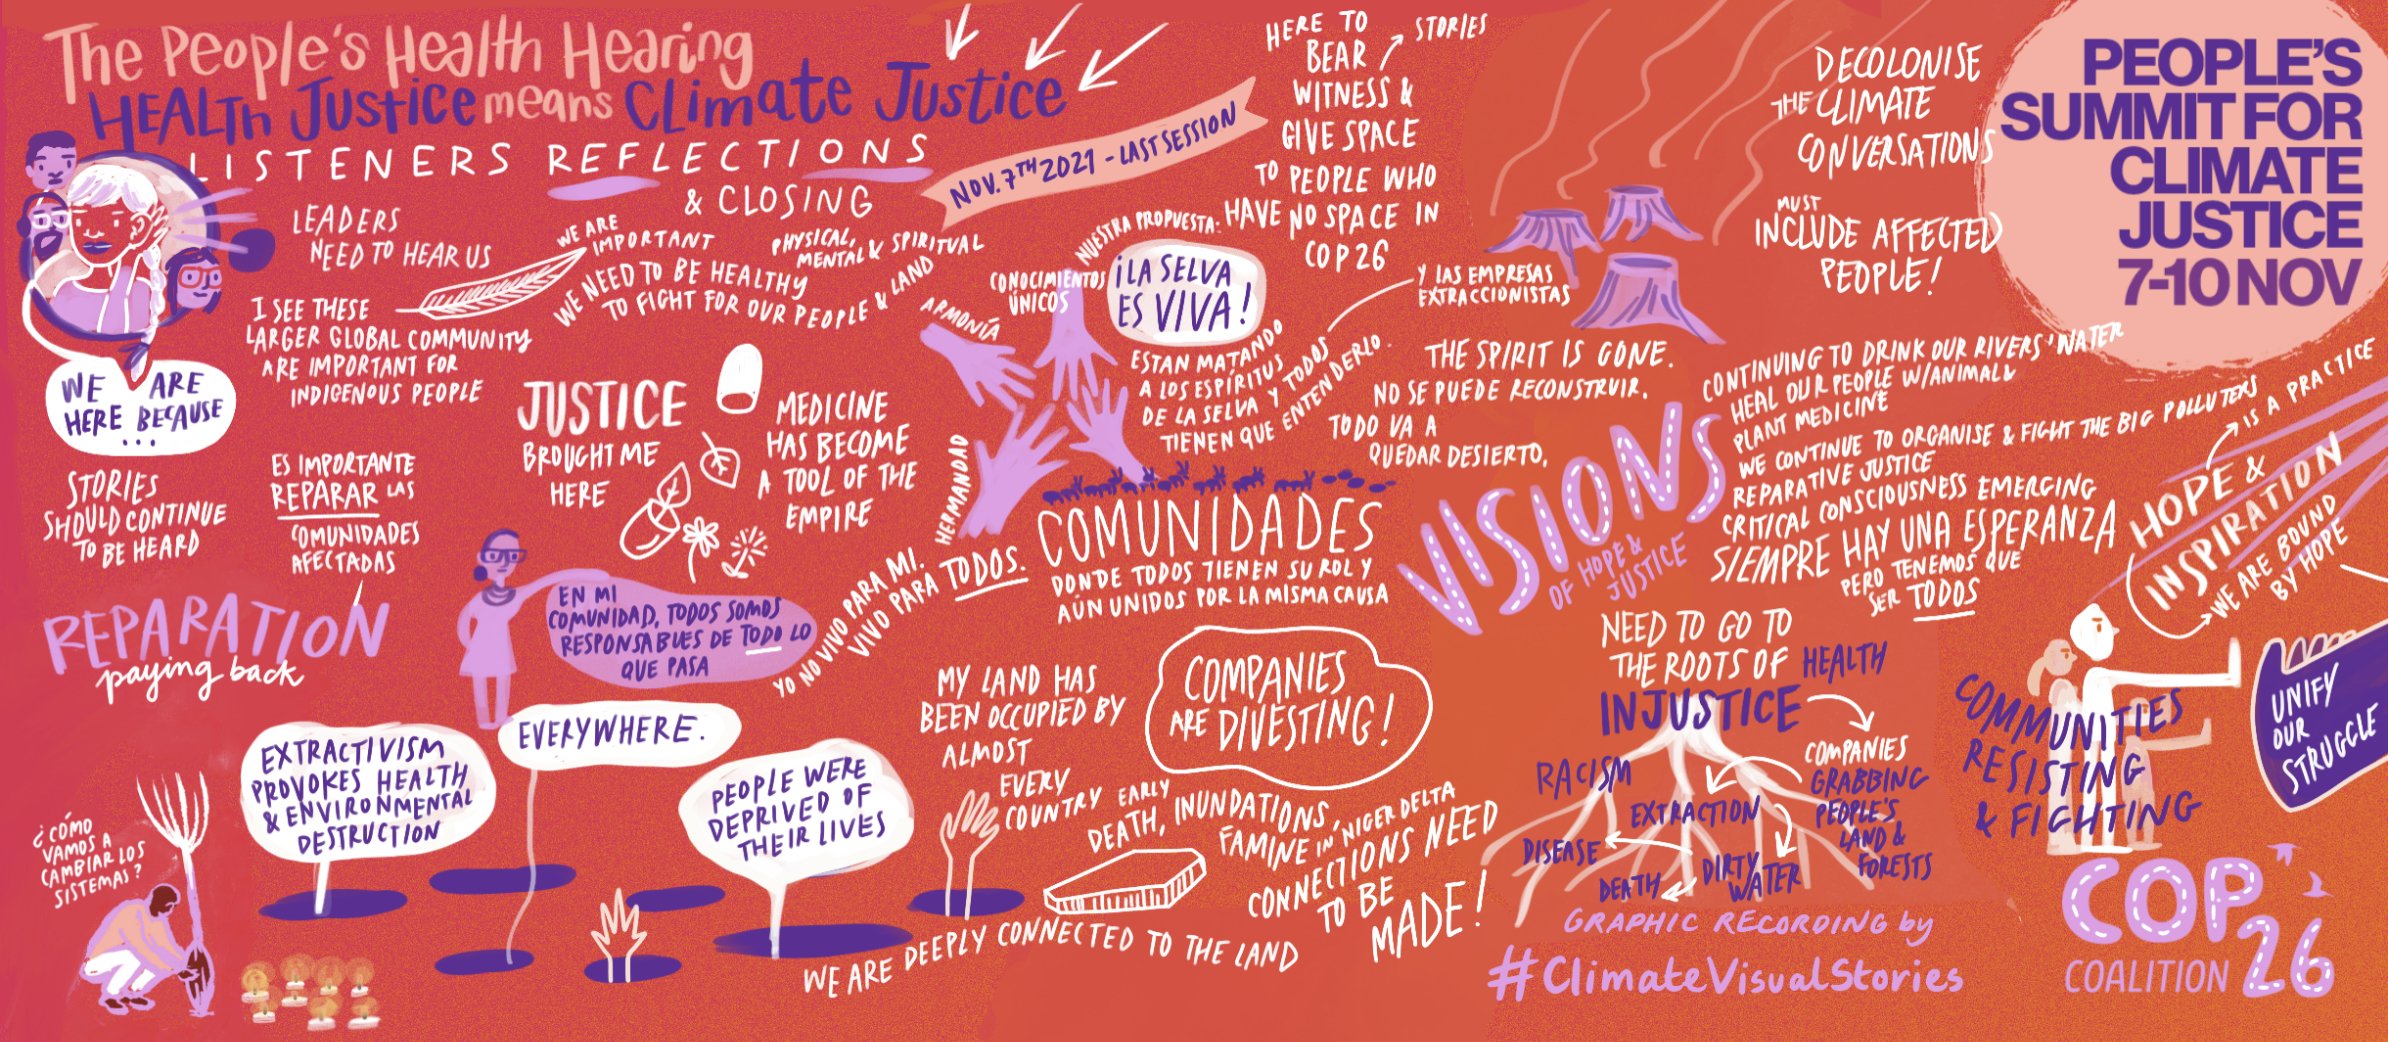 The People's Health Hearing
HEALTH JUSTICE means CLIMATE JUSTICE
LISTENERS REFLECTIONS
& CLOSING
NOV. 7TH 2021 - LAST SESSION
LEADERS
NEED TO HEAR US
WE ARE
IMPORTANT
PHYSICAL,
MENTAL & SPIRITUAL
WE NEED TO BE HEALTHY
TO FIGHT FOR OUR PEOPLE & LAND
I SEE THESE
LARGER GLOBAL COMMUNITY
ARE IMPORTANT FOR
INDIGENOUS PEOPLE
WE ARE
HERE BECAUSE
...
STORIES
SHOULD CONTINUE
TO BE HEARD
ES IMPORTANTE
REPARAR LAS
COMUNIDADES
AFECTADAS
REPARATION
paying back
JUSTICE
BROUGHT ME
HERE
MEDICINE
HAS BECOME
A TOOL OF THE
EMPIRE
EN MI
COMUNIDAD, TODOS SOMOS
RESPONSABLES DE TODO LO
QUE PASA
YO NO VIVO PARA MI.
VIVO PARA TODOS.
¿CÓMO
VAMOS A
CAMBIAR LOS
SISTEMAS?
EXTRACTIVISM
PROVOKES HEALTH
& ENVIRONMENTAL
DESTRUCTION
EVERYWHERE.
PEOPLE WERE
DEPRIVED OF
THEIR LIVES
HERE TO
BEAR
STORIES
WITNESS &
GIVE SPACE
TO PEOPLE WHO
HAVE NO SPACE IN
COP26
NUESTRA PROPUESTA:
¡LA SELVA
ES VIVA!
CONOCIMIENTOS
ÚNICOS
ARMONÍA
HERMANDAD
ESTAN MATANDO
A LOS ESPÍRITUS
DE LA SELVA Y TODOS
TIENEN QUE ENTENDERLO.
Y LAS EMPRESAS
EXTRACCIONISTAS
THE SPIRIT IS GONE.
NO SE PUEDE RECONSTRUIR.
TODO VA A
QUEDAR DESIERTO.
COMUNIDADES
DONDE TODOS TIENEN SU ROL Y
AÚN UNIDOS POR LA MISMA CAUSA
MY LAND HAS
BEEN OCCUPIED BY
ALMOST
EVERY
COUNTRY
COMPANIES
ARE DIVESTING!
EARLY
DEATH, INUNDATIONS,
FAMINE IN NIGER DELTA
CONNECTIONS NEED
TO BE
MADE!
WE ARE DEEPLY CONNECTED TO THE LAND
DECOLONISE
THE CLIMATE
CONVERSATIONS
MUST
INCLUDE AFFECTED
PEOPLE!
PEOPLE'S
SUMMIT FOR
CLIMATE
JUSTICE
7-10 NOV
VISIONS
OF HOPE &
JUSTICE
CONTINUING TO DRINK OUR RIVERS' WATER
HEAL OUR PEOPLE W/ANIMAL &
PLANT MEDICINE
WE CONTINUE TO ORGANISE & FIGHT THE BIG POLLUTERS
REPARATIVE JUSTICE
CRITICAL CONSCIOUSNESS EMERGING
SIEMPRE HAY UNA ESPERANZA
PERO TENEMOS QUE
SER TODOS
HOPE &
INSPIRATION
IS A PRACTICE
WE ARE BOUND
BY HOPE
NEED TO GO TO
THE ROOTS OF HEALTH
INJUSTICE
RACISM
EXTRACTION
DISEASE
DEATH
DIRTY
WATER
COMPANIES
GRABBING
PEOPLE'S
LAND &
FORESTS
COMMUNITIES
RESISTING
& FIGHTING
UNIFY
OUR
STRUGGLE
GRAPHIC RECORDING by
#ClimateVisualStories
COP26
COALITION